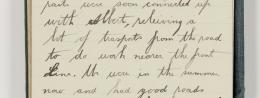 rails were soon connected up
with Albert, relieving a
lot of trasports from the road
to do work nearer the front
line. We were in the summer
now and had good roads